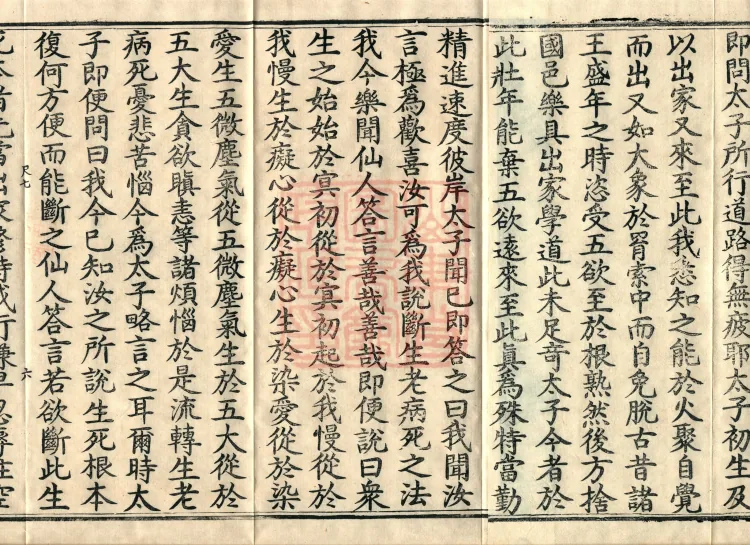 即問太子所行道路得無疲耶太子初生及
以出家又來至此我悉知之能於火聚自覺
而出又如大象於罥索中而自免脫古昔諸
王盛年之時恣受五欲至於根熟然後方捨
國邑樂具出家學道此未足奇太子今者於
此壯年能棄五欲遠來至此真為殊特當勤
精進速度彼岸太子聞已即答之曰我聞汝
言極為歡喜汝可為我說斷生老病死之法
我今樂聞仙人答言善哉善哉即便說曰衆
生之始始於冥初從於冥初起於我慢從於
我慢生於癡心從於癡心生於染愛從於染
愛生五微塵氣從五微塵氣生於五大從於
五大生貪欲瞋恚等諸煩惱於是流轉生老
病死憂悲苦惱今為太子略言之耳爾時太
子即便問曰我今已知汝之所說生死根本
復何方便而能斷之仙人答言若欲斷此生
尺七 六